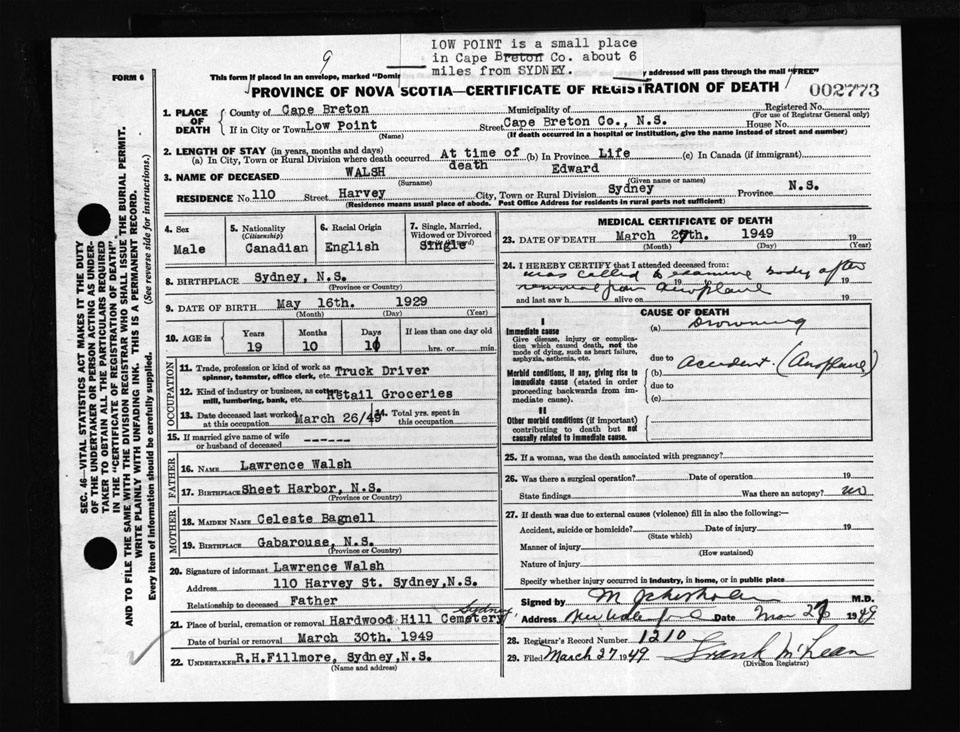 LOW POINT is a small place
in Cape Breton Co. about 6
miles from SYDNEY.
9
FORM 6
This form if placed in an envelope, marked "Domin
y addressed will pass through the mail "FREE"
PROVINCE OF NOVA SCOTIA—CERTIFICATE OF REGISTRATION OF DEATH
002773
1. PLACE OF DEATH
County of Cape Breton Municipality of Registered No.
(For use of Registrar General only)
If in City or Town Low Point Street Cape Breton Co., N.S. House No.
(Name) (If death occurred in a hospital or institution, give the name instead of street and number)
2. LENGTH OF STAY (in years, months and days)
(a) In City, Town or Rural Division where death occurred At time of death (b) In Province Life (c) In Canada (if immigrant)
3. NAME OF DECEASED WALSH Edward
(Surname) (Given name or names)
RESIDENCE No 110 Street Harvey City, Town or Rural Division Sydney Province N.S.
(Residence means usual place of abode. Post Office Address for residents in rural parts not sufficient)
4. Sex
Male
5. Nationality
(Citizenship)
Canadian
6. Racial Origin
English
7. Single, Married,
Widowed or Divorced
Single
8. BIRTHPLACE Sydney, N.S.
(Province or Country)
9. DATE OF BIRTH May 16th. 1929
(Month) (Day) (Year)
10. AGE in
Years Months Days If less than one day old
19 10 11 hrs. or min.
OCCUPATION
11. Trade, profession or kind of work as
spinner, teamster, office clerk, etc. Truck Driver
12. Kind of industry or business, as cotton
mill, lumbering, bank, etc. Retail Groceries
13. Date deceased last worked
at this occupation March 26/49
14. Total yrs. spent in
this occupation
15. If married give name of wife
or husband of deceased ------
FATHER
16. NAME Lawrence Walsh
17. BIRTHPLACE Sheet Harbor, N.S.
(Province or Country)
MOTHER
18. MAIDEN NAME Celeste Bagnell
19. BIRTHPLACE Gabarouse, N.S.
(Province or Country)
20. Signature of informant Lawrence Walsh
Address 110 Harvey St. Sydney,N.S.
Relationship to deceased Father
21. Place of burial, cremation or removal Hardwood Hill Cemetery Sydney
Date of burial or removal March 30th. 1949
22. UNDERTAKER R.H.Fillmore, Sydney,N.S.
(Name and address)
MEDICAL CERTIFICATE OF DEATH
23. DATE OF DEATH March 27th. 1949 19
(Month) (Day) (Year)
24. I HEREBY CERTIFY that I attended deceased from:
was called to examine body after
19 19
removal from Aeroplane
and last saw h alive on 19
CAUSE OF DEATH
I
Immediate cause
Give disease, injury or compli-
cation which caused death, not the
mode of dying, such as heart failure,
asphyxia, asthenia, etc.
(a) Drowning
due to
Morbid conditions, if any, giving rise to
immediate cause (stated in order
proceeding backwards from im-
mediate cause).
(b) Accident. (Aeroplane)
due to
(c)
II
Other morbid conditions (if important)
contributing to death but not
causally related to immediate cause.
25. If a woman, was the death associated with pregnancy?
26. Was there a surgical operation? Date of operation 19
State findings Was there an autopsy? no
27. If death was due to external causes (violence) fill in also the following:—
Accident, suicide or homicide? Date of injury 19
(State which)
Manner of injury
(How sustained)
Nature of injury
Specify whether injury occurred in industry, in home, or in public place
Signed by M M.D.
Address Date Mar 27 1949
28. Registrar's Record Number 1210
29. Filed March 27 1949 Frank McLean
(Division Registrar)
SEC. 46—VITAL STATISTICS ACT MAKES IT THE DUTY
OF THE UNDERTAKER OR PERSON ACTING AS UNDER-
TAKER TO OBTAIN ALL THE PARTICULARS REQUIRED
IN THE "CERTIFICATE OF REGISTRATION OF DEATH",
AND TO FILE THE SAME WITH THE DIVISION REGISTRAR WHO SHALL ISSUE THE BURIAL PERMIT.
WRITE PLAINLY WITH UNFADING INK. THIS IS A PERMANENT RECORD.
Every item of information should be carefully supplied. (See reverse side for instructions.)